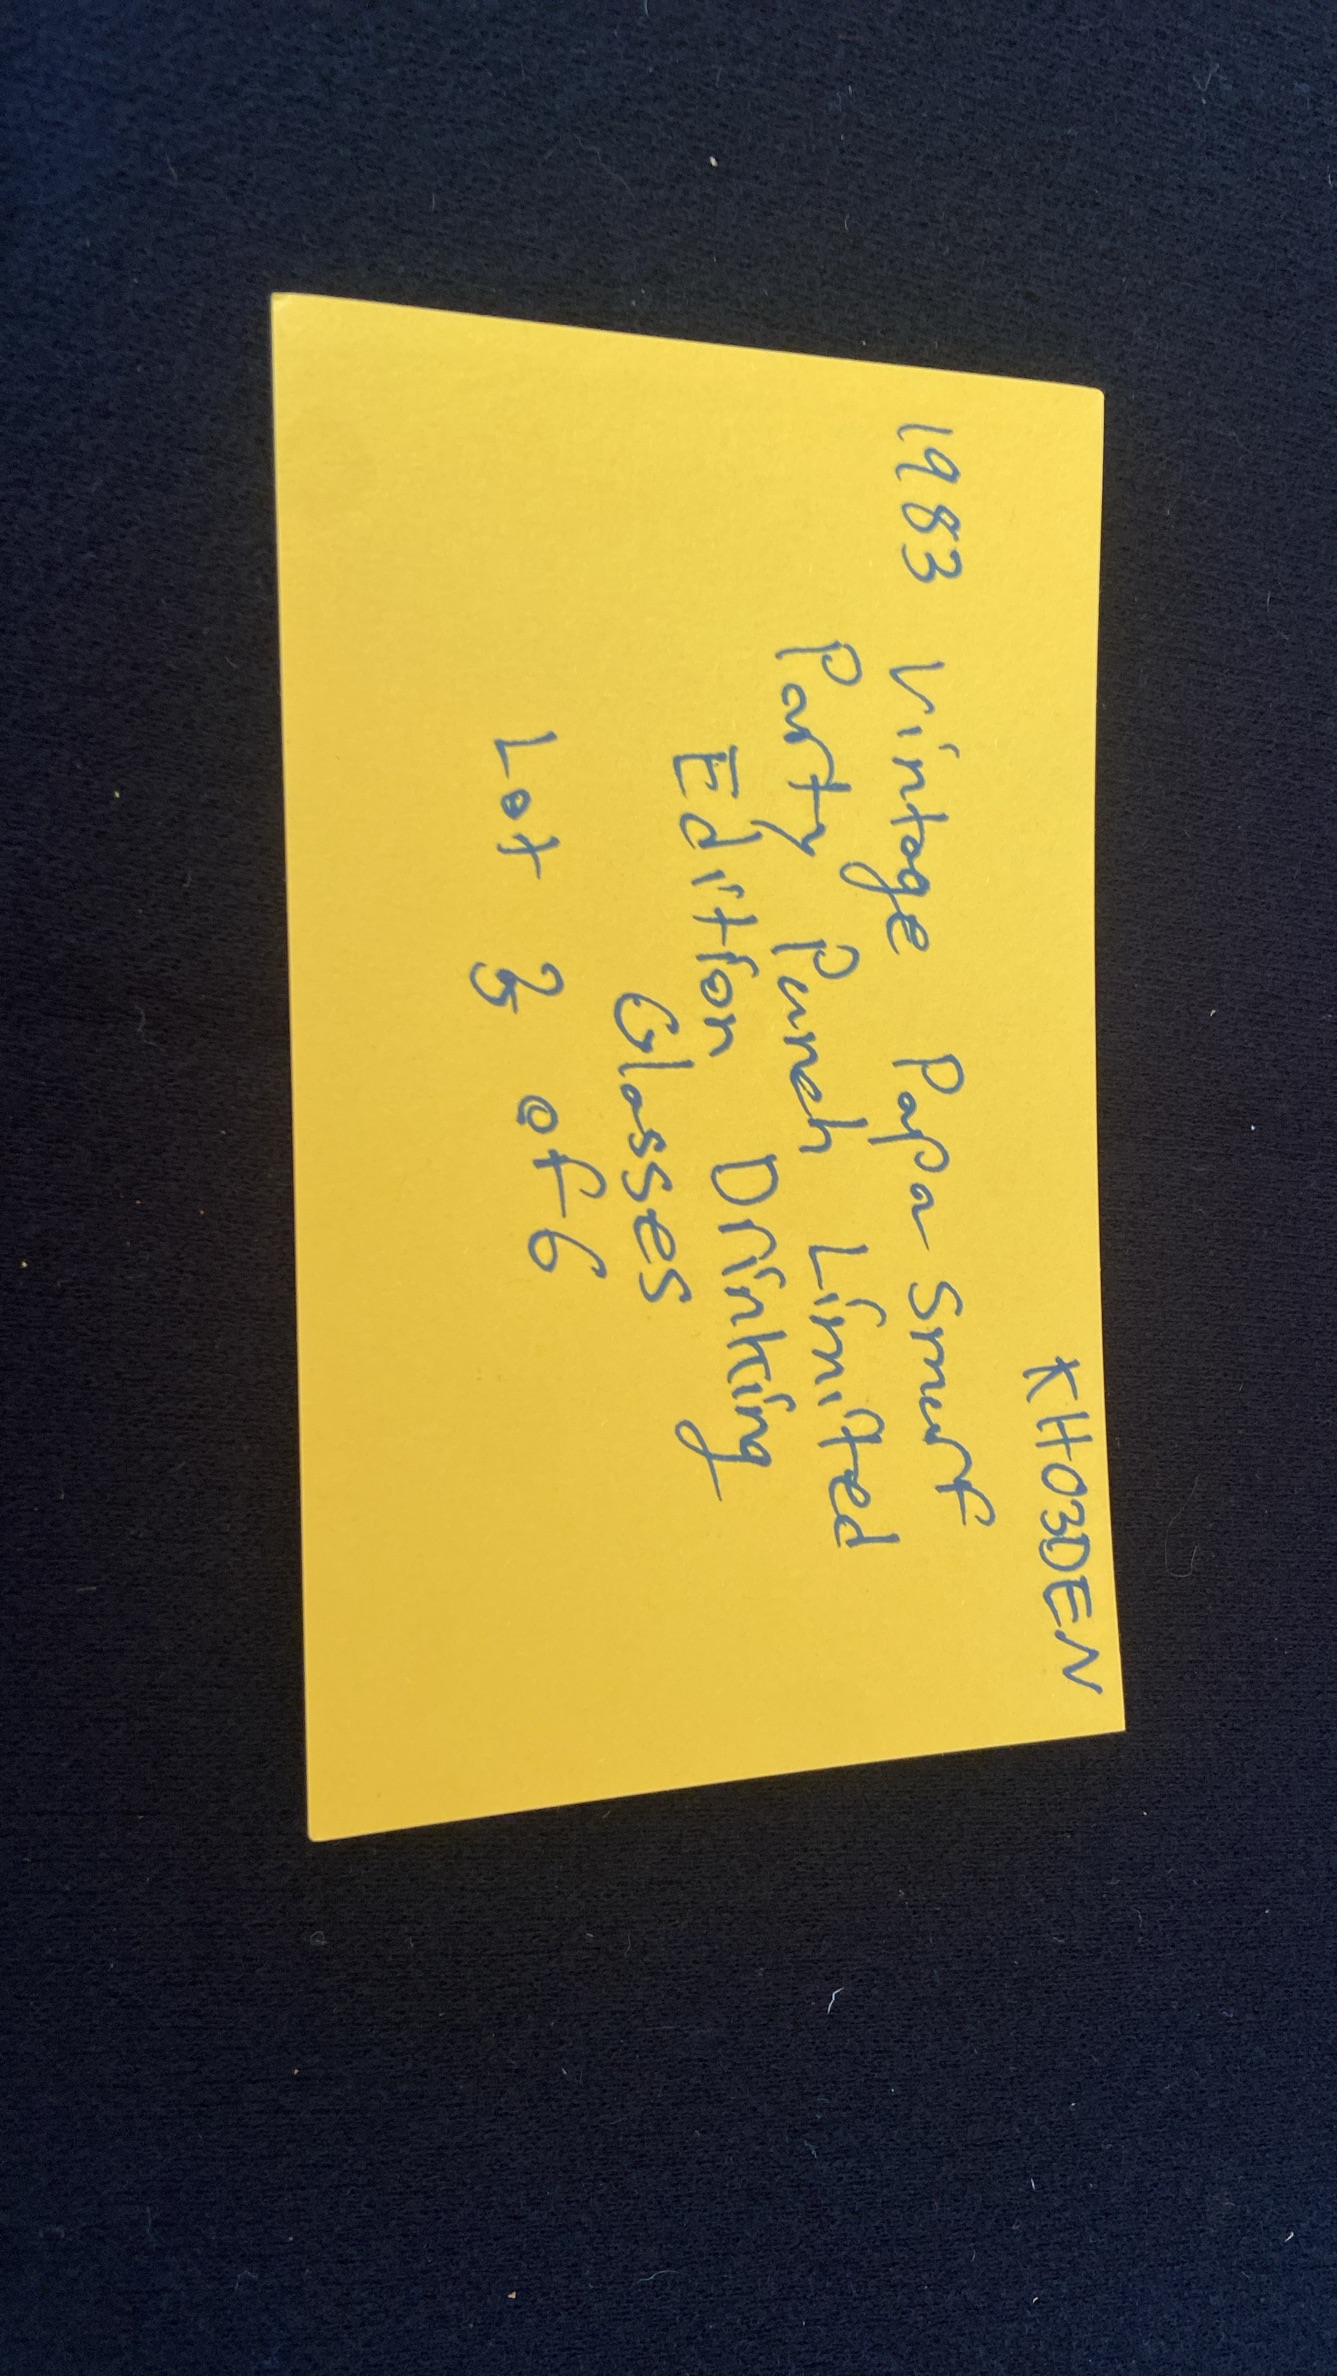 KH03DEN
1983 Vintage Papa Smurf
Party Punch Limited
Edition Drinking
Glasses
Lot of 6